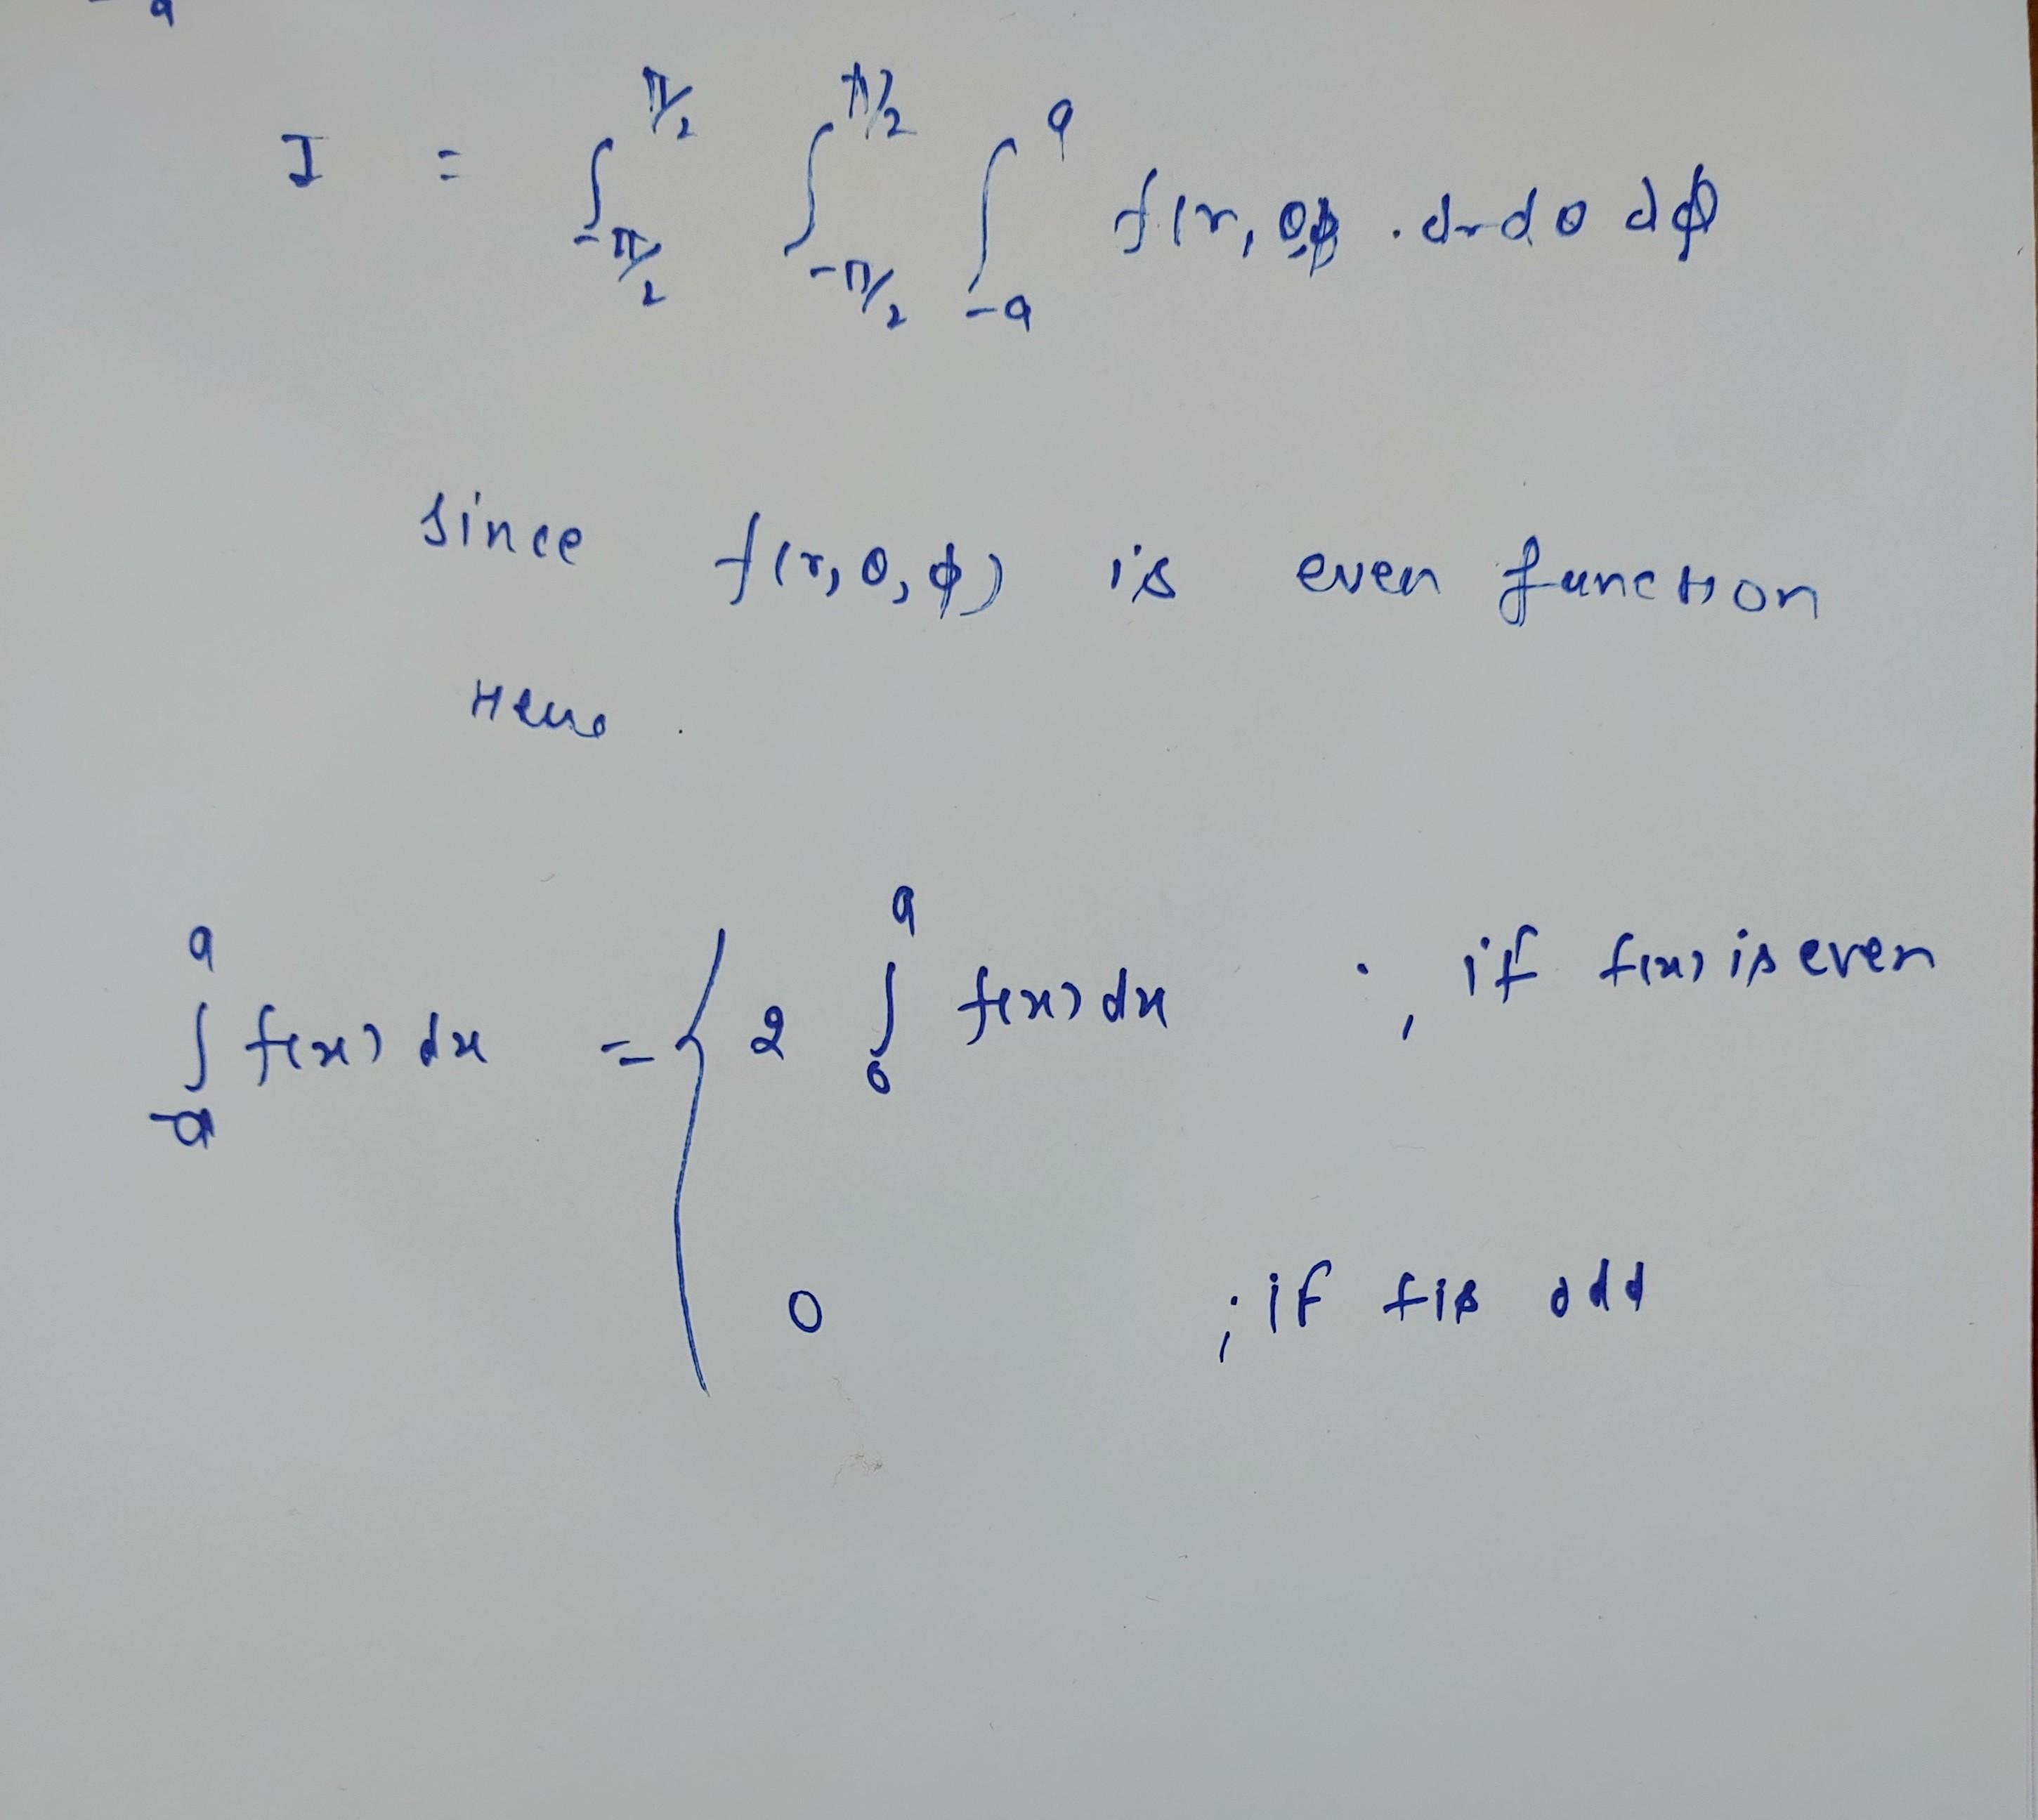 a
I = ∫_{-π/2}^{π/2} ∫_{-π/2}^{π/2} ∫_{-a}^{a} f(r, θ,ϕ . dr dθ dϕ
Since f(r, θ, ϕ) is even function
∫_{-a}^{a} f(x) dx = { 2 ∫_{0}^{a} f(x) dx ; if f(x) is even
0 ; if f is odd